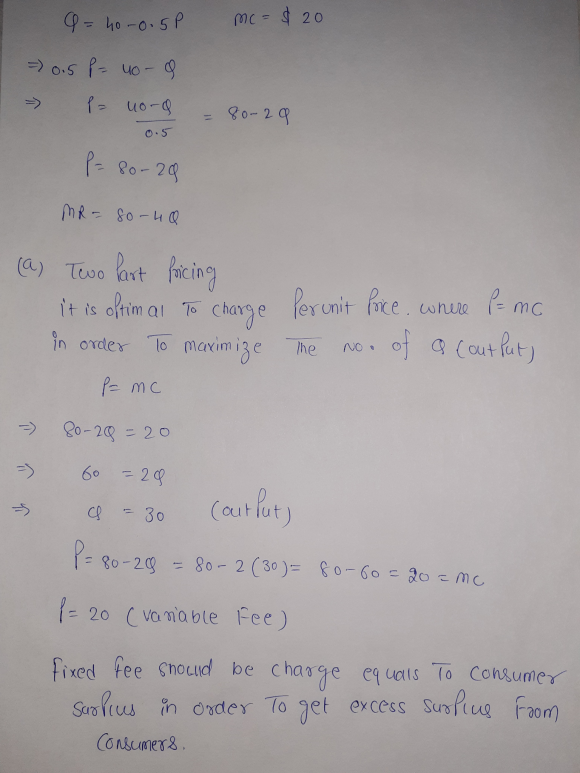 Q = 40-0.5P MC = $ 20
=> 0.5 P = 40 - Q
=> P = 40-Q / 0.5 = 80-2Q
P = 80-2Q
MR = 80-4Q
(a) Two Part Pricing
it is optimal To charge Per unit Price. where P = MC
in order To maximize The no. of Q (output)
P = MC
=> 80-2Q = 20
=> 60 = 2Q
=> Q = 30 (output)
P = 80-2Q = 80-2(30) = 80-60 = 20 = MC
P = 20 (variable Fee)
Fixed fee should be charge equals To consumer
Surplus in order To get excess surplus From
Consumers.